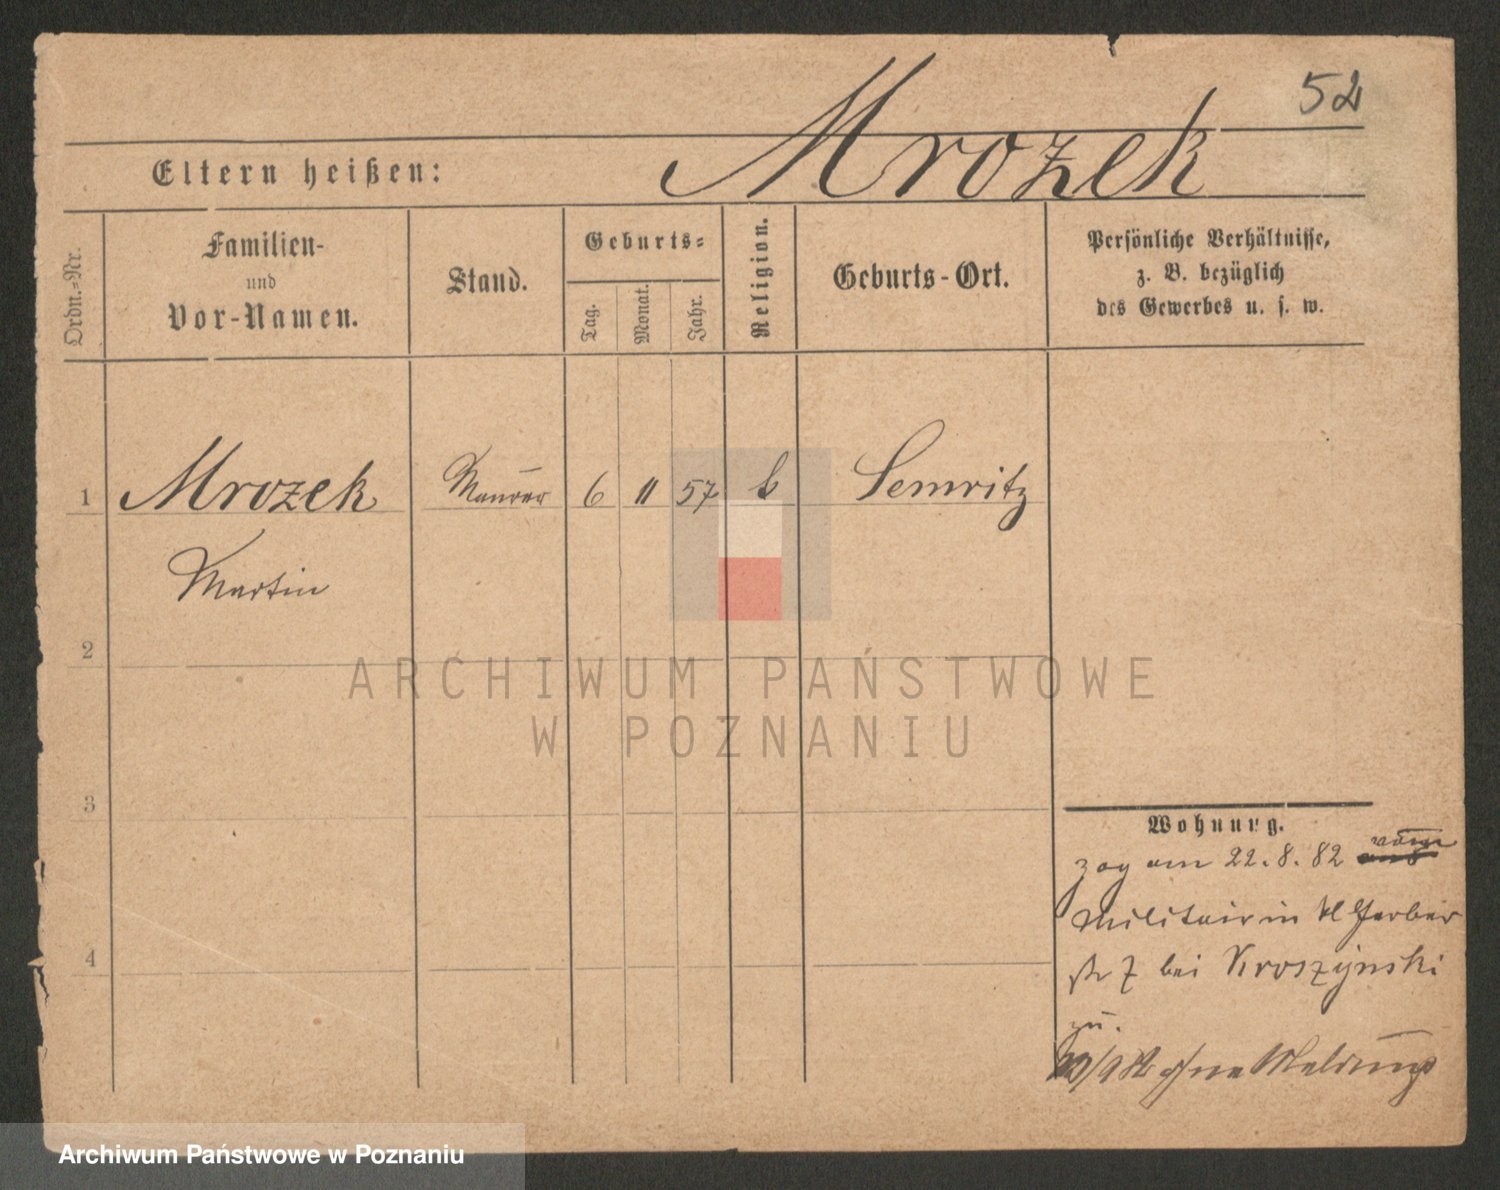 52
Mrozek
Eltern heißen:
Ordn.-Nr.
Familien-
und
Vor-Namen.
Stand.
Geburts-
Tag.
Monat.
Jahr.
Religion.
Geburts-Ort.
Persönliche Verhältnisse,
z. B. bezüglich
des Gewerbes u. s. w.
1 Mrozek Maurer 6 11 57 k Semritz
Martin
2
3
4
Wohnung.
zog am 22.8.82
Militair in Kl Gerber
str 7 bei Kroszynski
zu.
ohne Meldung
ARCHIWUM PAŃSTWOWE
W POZNANIU
Archiwum Państwowe w Poznaniu